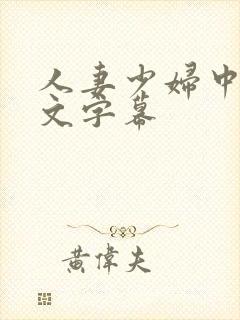 人妻少婦中
文字幕
黃偉夫